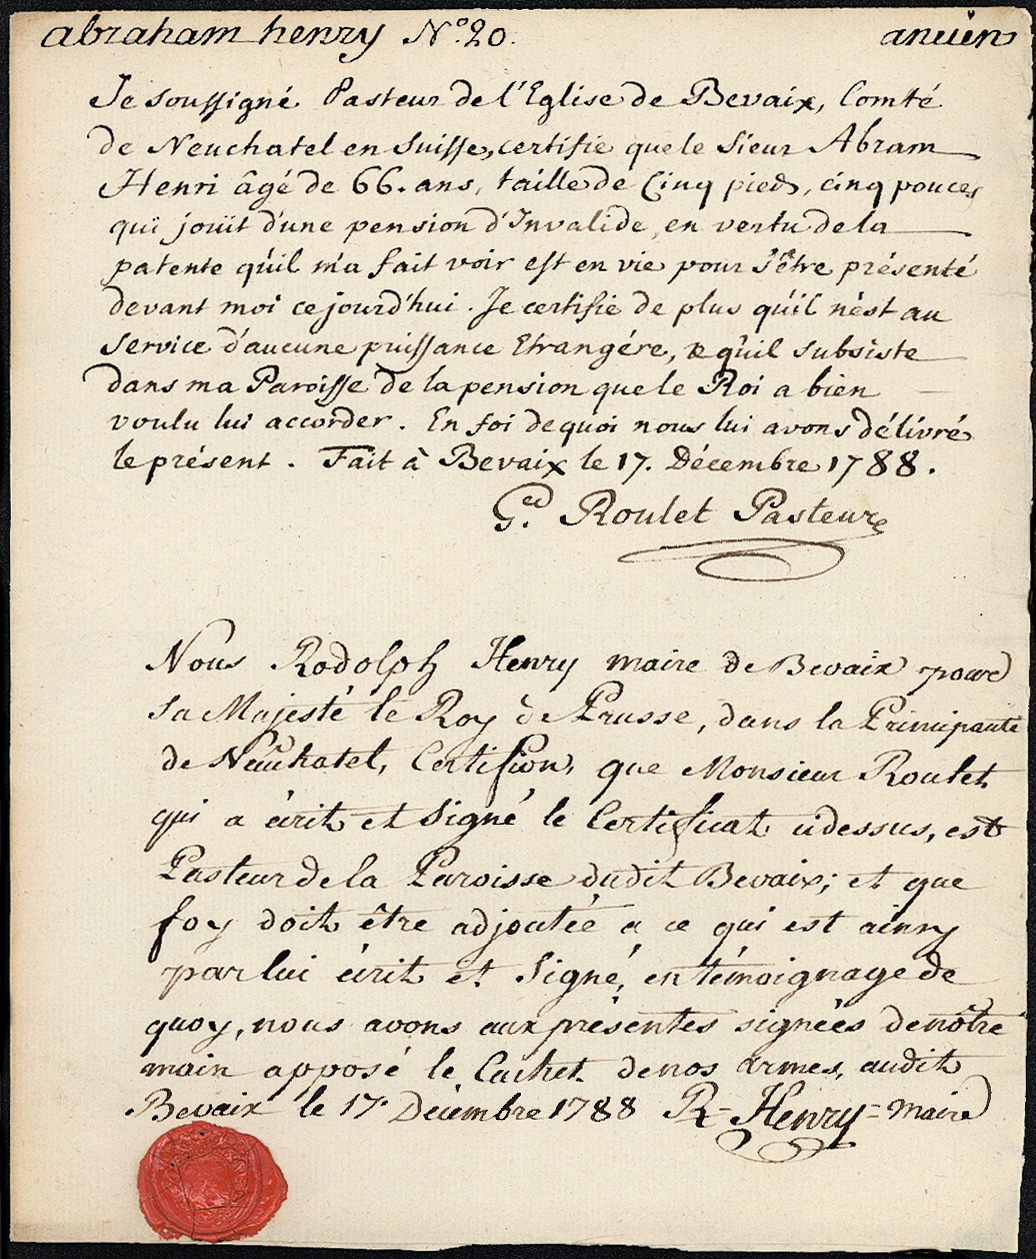 abraham henry N.º 20. ancien
Je soussigné Pasteur de l'Eglise de Bevaix, Comté
de Neuchatel en Suisse, certifie que le Sieur Abram
Henri âgé de 66. ans, taille de Cinq pieds, cinq pouces,
qui jouït d'une pension d'Invalide, en vertu de la
patente qu'il m'a fait voir est en vie pour s'être présenté
devant moi ce jourd'hui. Je certifie de plus qu'il n'est au
Service d'aucune puissance Etrangére, & qu'il subsiste
dans ma Paroisse de la pension que le Roi a bien
voulu lui accorder. En foi de quoi nous lui avons délivré
le présent. Fait à Bevaix le 17. Décembre 1788.
Roulet Pasteur
Nous Rodolph Henry maire de Bevaix pour
Sa Majesté le Roy de Prusse, dans la Principauté
de Neuchatel, Certifions, que Monsieur Roulet
qui a écrit et Signé le Certificat cidessus, est
Pasteur de la Paroisse dudit Bevaix; et que
foy doit être adjoutée a ce qui est ainsy
par lui écrit et Signé, en témoignage de
quoy, nous avons aux présentes signées de nôtre
main apposé le Cachet de nos armes, audit
Bevaix le 17. Décembre 1788 R- Henry = maire